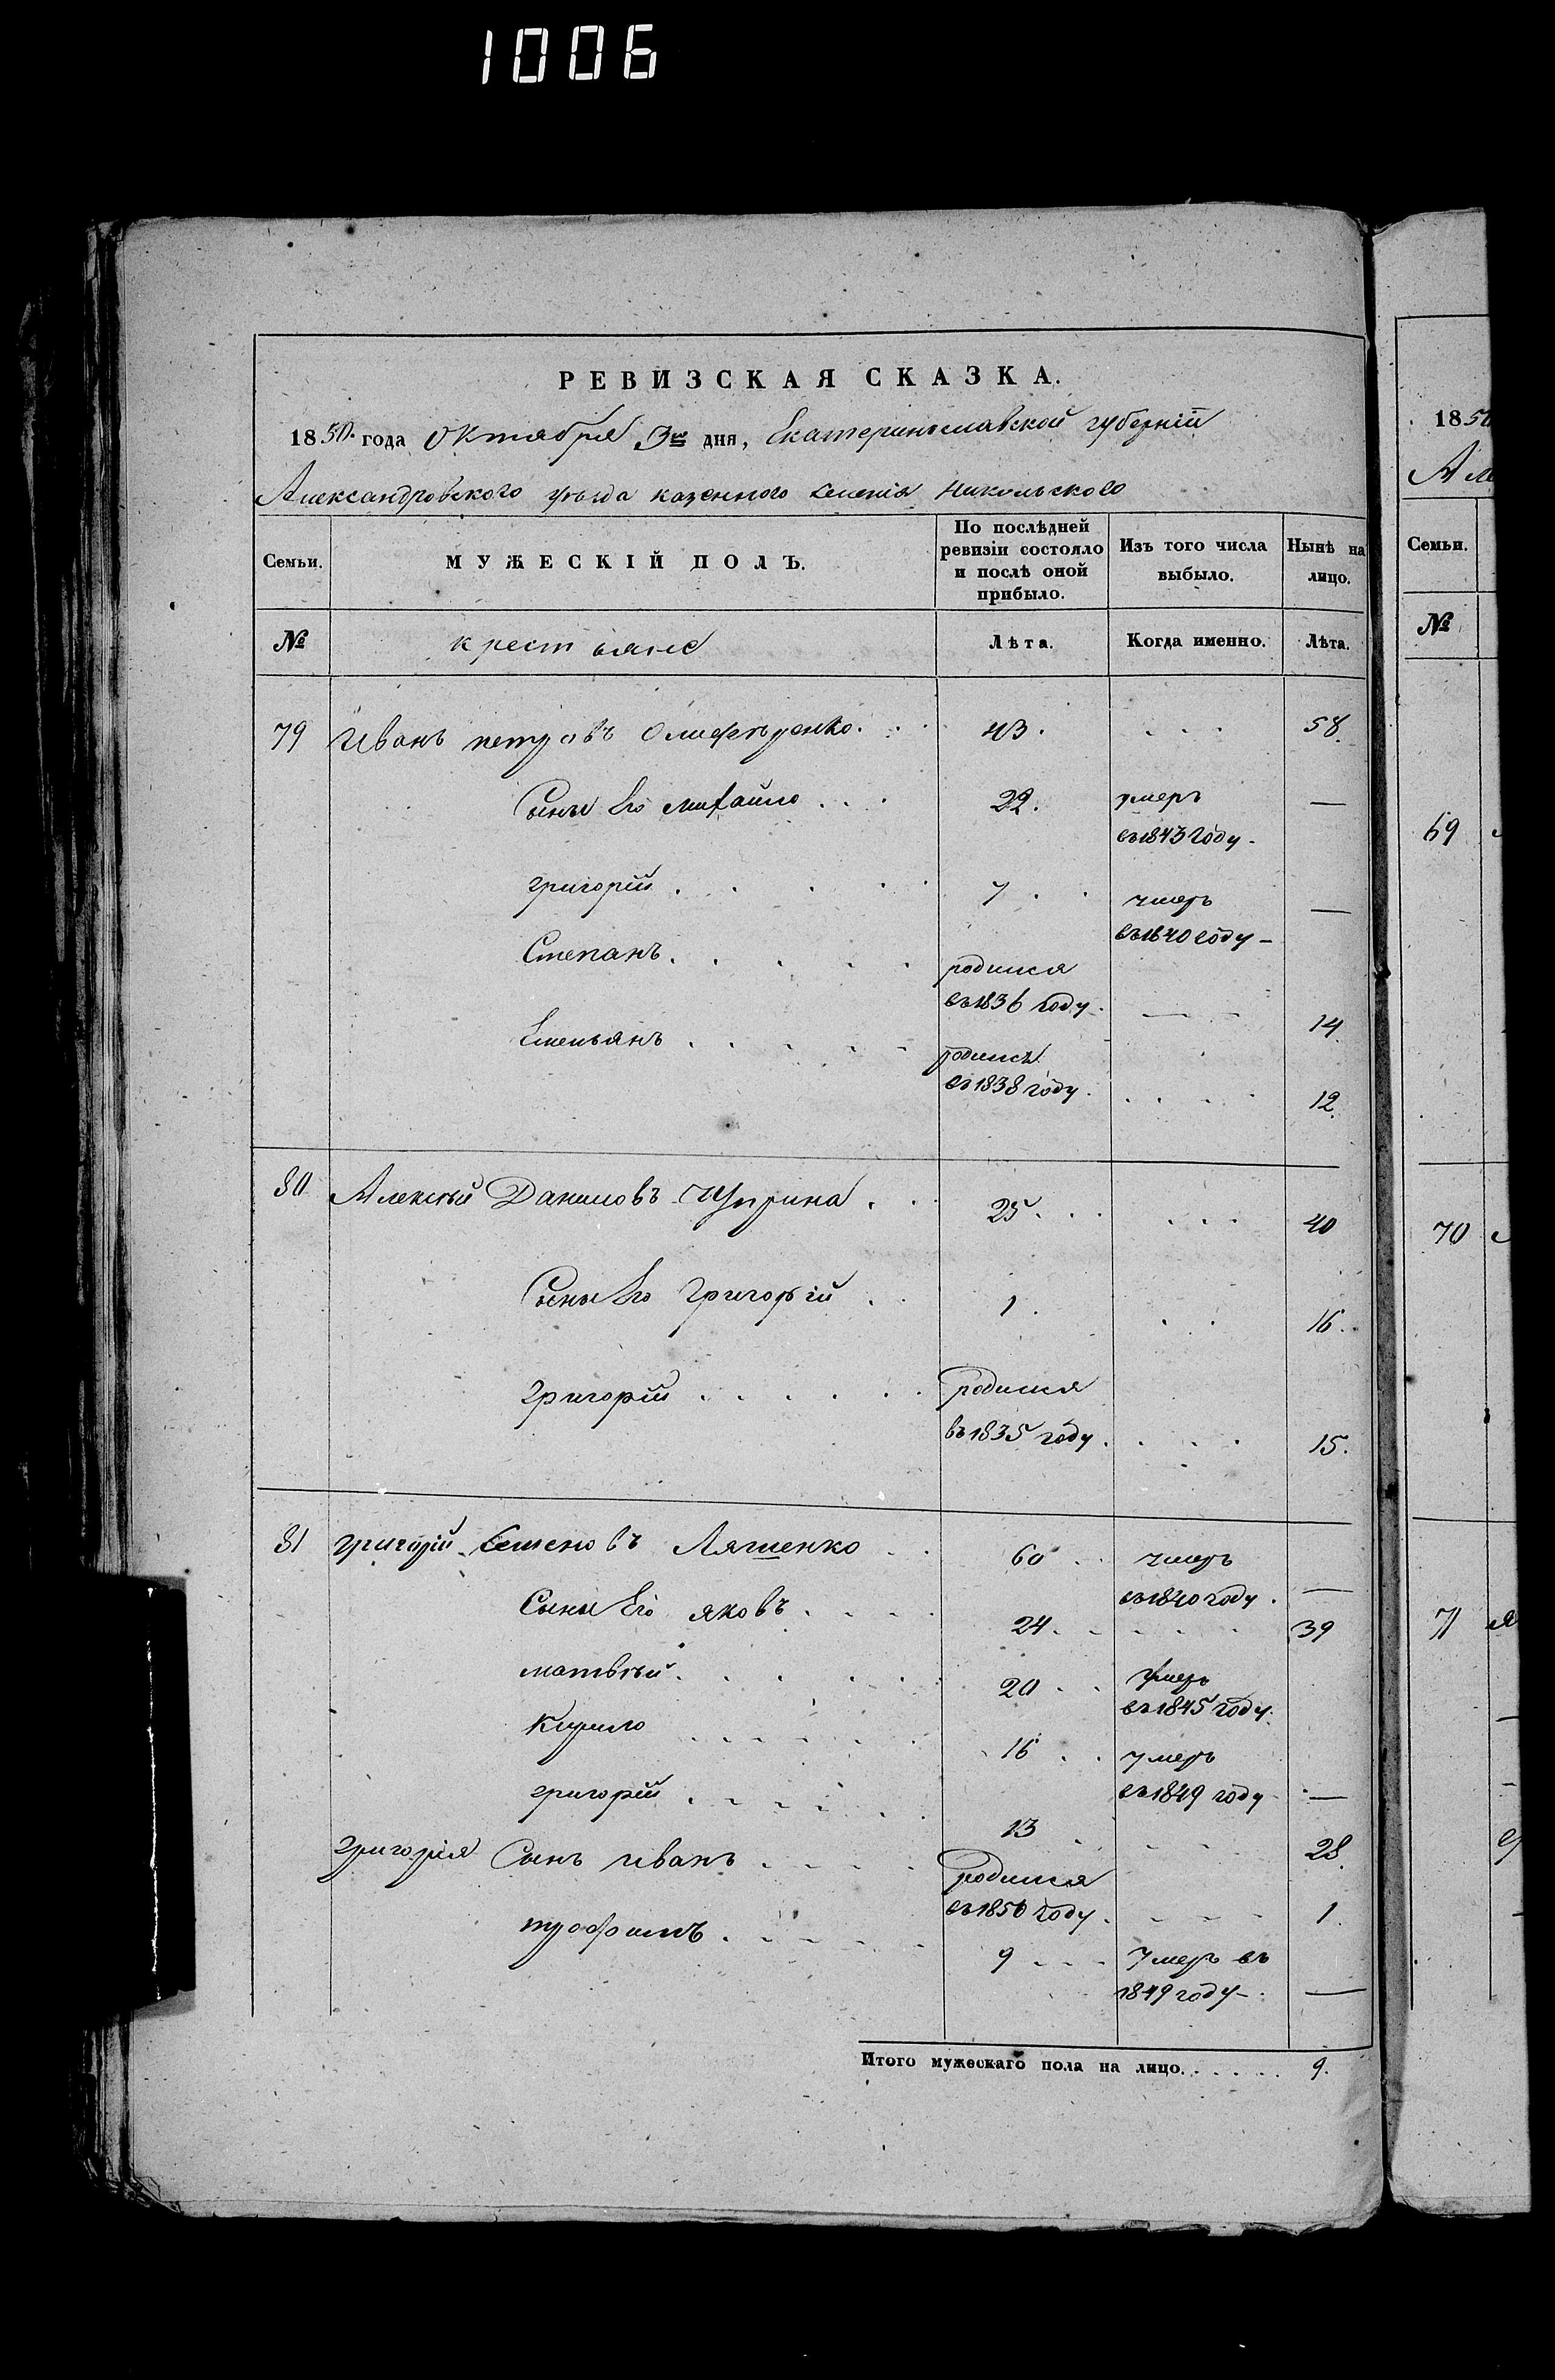 1006
РЕВИЗСКАЯ СКАЗКА.
1850. года Октября 3го дня, Екатеринославской губерніи
Александровского уѣзда казенного селенія Никольского
Семьи. МУЖЕСКІЙ ПОЛЪ. По послѣдней ревизіи состояло и послѣ оной прибыло. Изъ того числа выбыло. Нынѣ на лицо.
№ крестьяне Лѣта. Когда именно. Лѣта.
79 Иванъ петровъ Олифѣренко. 43. 58.
Сыны Его михайло 22. умеръ —
въ 1843 году.
григорій 7 умеръ —
въ 1840 году —
Степанъ. родился
въ 1836 году. 14.
Емельянъ родился
въ 1838 году. 12.
80 Алексѣй Даниловъ 25. 40
Сыны Его Григорій 1. 16.
Григорій родился
въ 1835 году. 15.
81 григорій Семеновъ Ляшенко 60 умеръ
въ 1840 году. —
Сыны Его яковъ. 24. 39
матвѣй. 20 умеръ
въ 1845 году.
Кирило 16 умеръ
въ 1849 году —
григорій 13 28.
григорія Сынъ иванъ родился
въ 1850 году. 1.
трофимъ. 9 умеръ въ
1849 году. —
Итого мужескаго пола на лицо. 9.
1850
Але
Семьи.
№
69
70
71